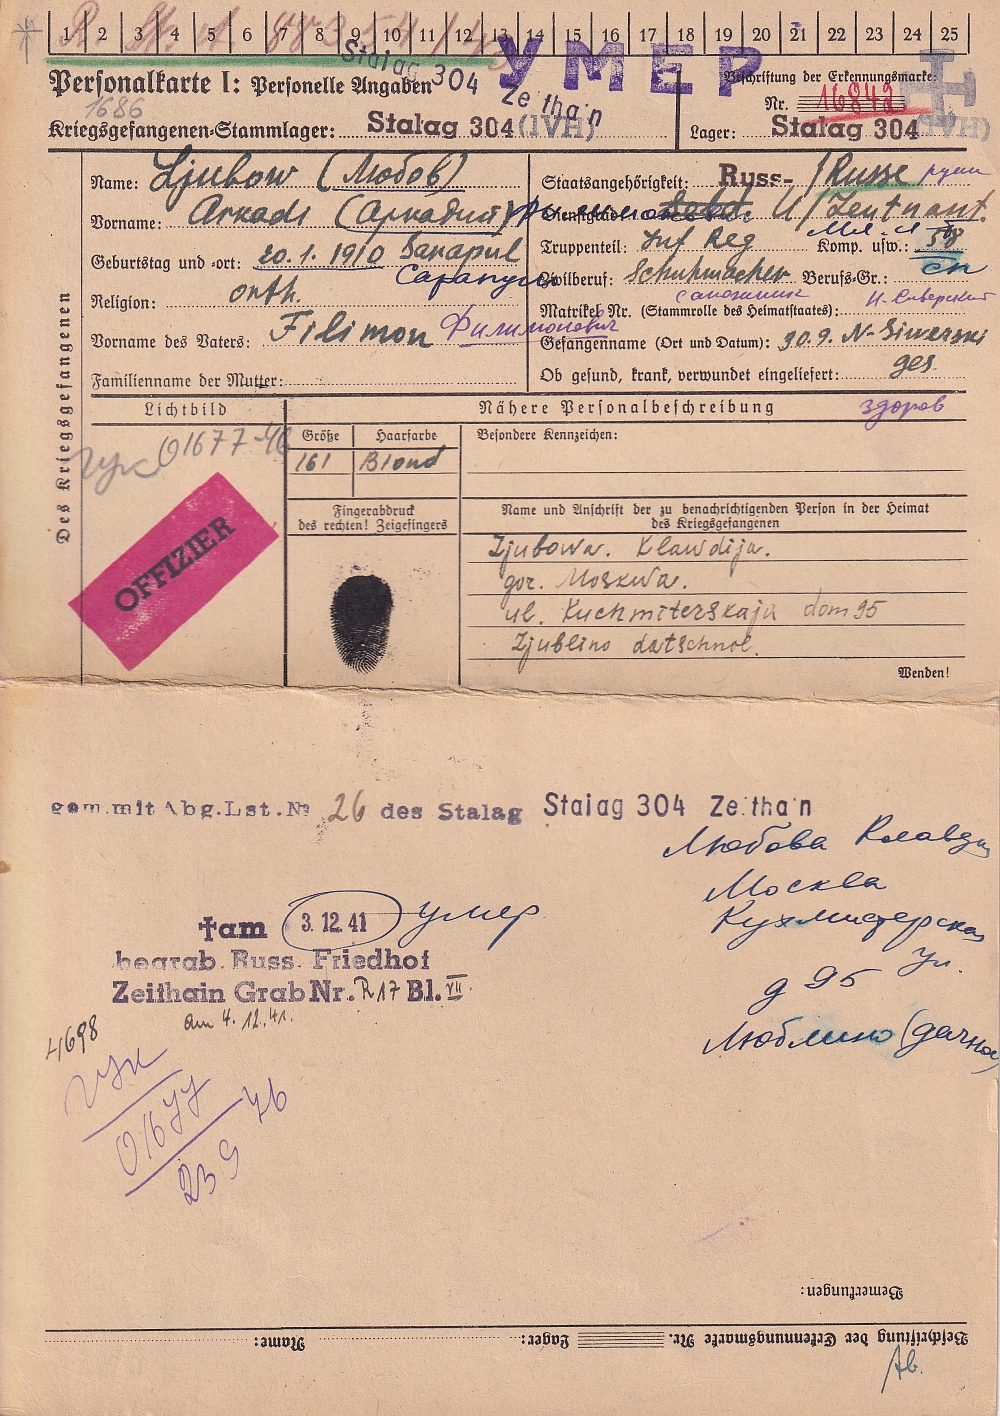 1 2 3 4 5 6 7 8 9 10 11 12 13 14 15 16 17 18 19 20 21 22 23 24 25
УМЕР
Stalag 304
Zeithain
Personalkarte I: Personelle Angaben
Beschriftung der Erkennungsmarke:
1686
Nr. 16842
Kriegsgefangenen-Stammlager: Stalag 304 (IVH)
Lager: Stalag 304 (IVH)
Des Kriegsgefangenen
Name: Ljubow (Любов)
Staatsangehörigkeit: Russ- / Russe
Vorname: Arkadi (Аркадий) Филимонович
Dienstgrad: Sold. U/Leutnant.
Мл. л
Geburtstag und -ort: 20.1.1910 Sarapul
Сарапул
Truppenteil: Inf Reg Komp. usw.:
Zivilberuf: Schuhmacher Berufs-Gr.:
сапожник
Religion: orth.
Matrikel Nr. (Stammrolle des Heimatstaates):
Н-Сиверский
Vorname des Vaters: Filimon Филимонович
Gefangennahme (Ort und Datum): 30.9. N-Siwerski
Familienname der Mutter:
Ob gesund, krank, verwundet eingeliefert: ges.
здоров
Lichtbild
Nähere Personalbeschreibung
01677-46
Größe Haarfarbe
Besondere Kennzeichen:
161 Blond
OFFIZIER
Fingerabdruck
des rechten! Zeigefingers
Name und Anschrift der zu benachrichtigenden Person in der Heimat
des Kriegsgefangenen
Ljubowa. Klawdija.
gor. Moskwa.
ul. Kuchmiterskaja dom 95
Ljublino datschnol.
Wenden!
gem.mit Abg.Lst.Nr 26 des Stalag Stalag 304 Zeithain
Любова Клавдия
Москва
Кухмистерская
ул.
д 95
Люблино (дачна
†am 3.12.41 умер
begrab. Russ. Friedhof
Zeithain Grab Nr. R17 Bl. VII.
am 4.12.41.
4698
01677 46
239
Bemerkungen:
Beschriftung der Erkennungsmarke Nr. Lager: Name: